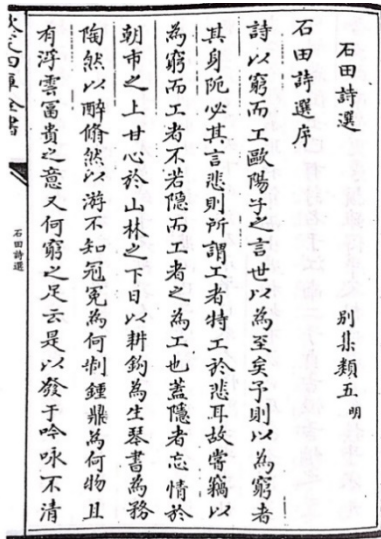 石田詩選　別集類五明
石田詩選序
詩以窮而工歐陽子之言世以為至矣予則以為窮者
其身阨必其言悲則所謂工者特工於悲耳故嘗竊以
為窮而工者不若隠而工者之為工也蓋隠者忘情於
朝市之上甘心於山林之下日以耕釣為生琴書為務
陶然以醉翛然以游不知冠冕為何制鍾鼎為何物且
有浮雲富貴之意又何窮之足云是以發于吟咏不清
四庫全書
石田詩選